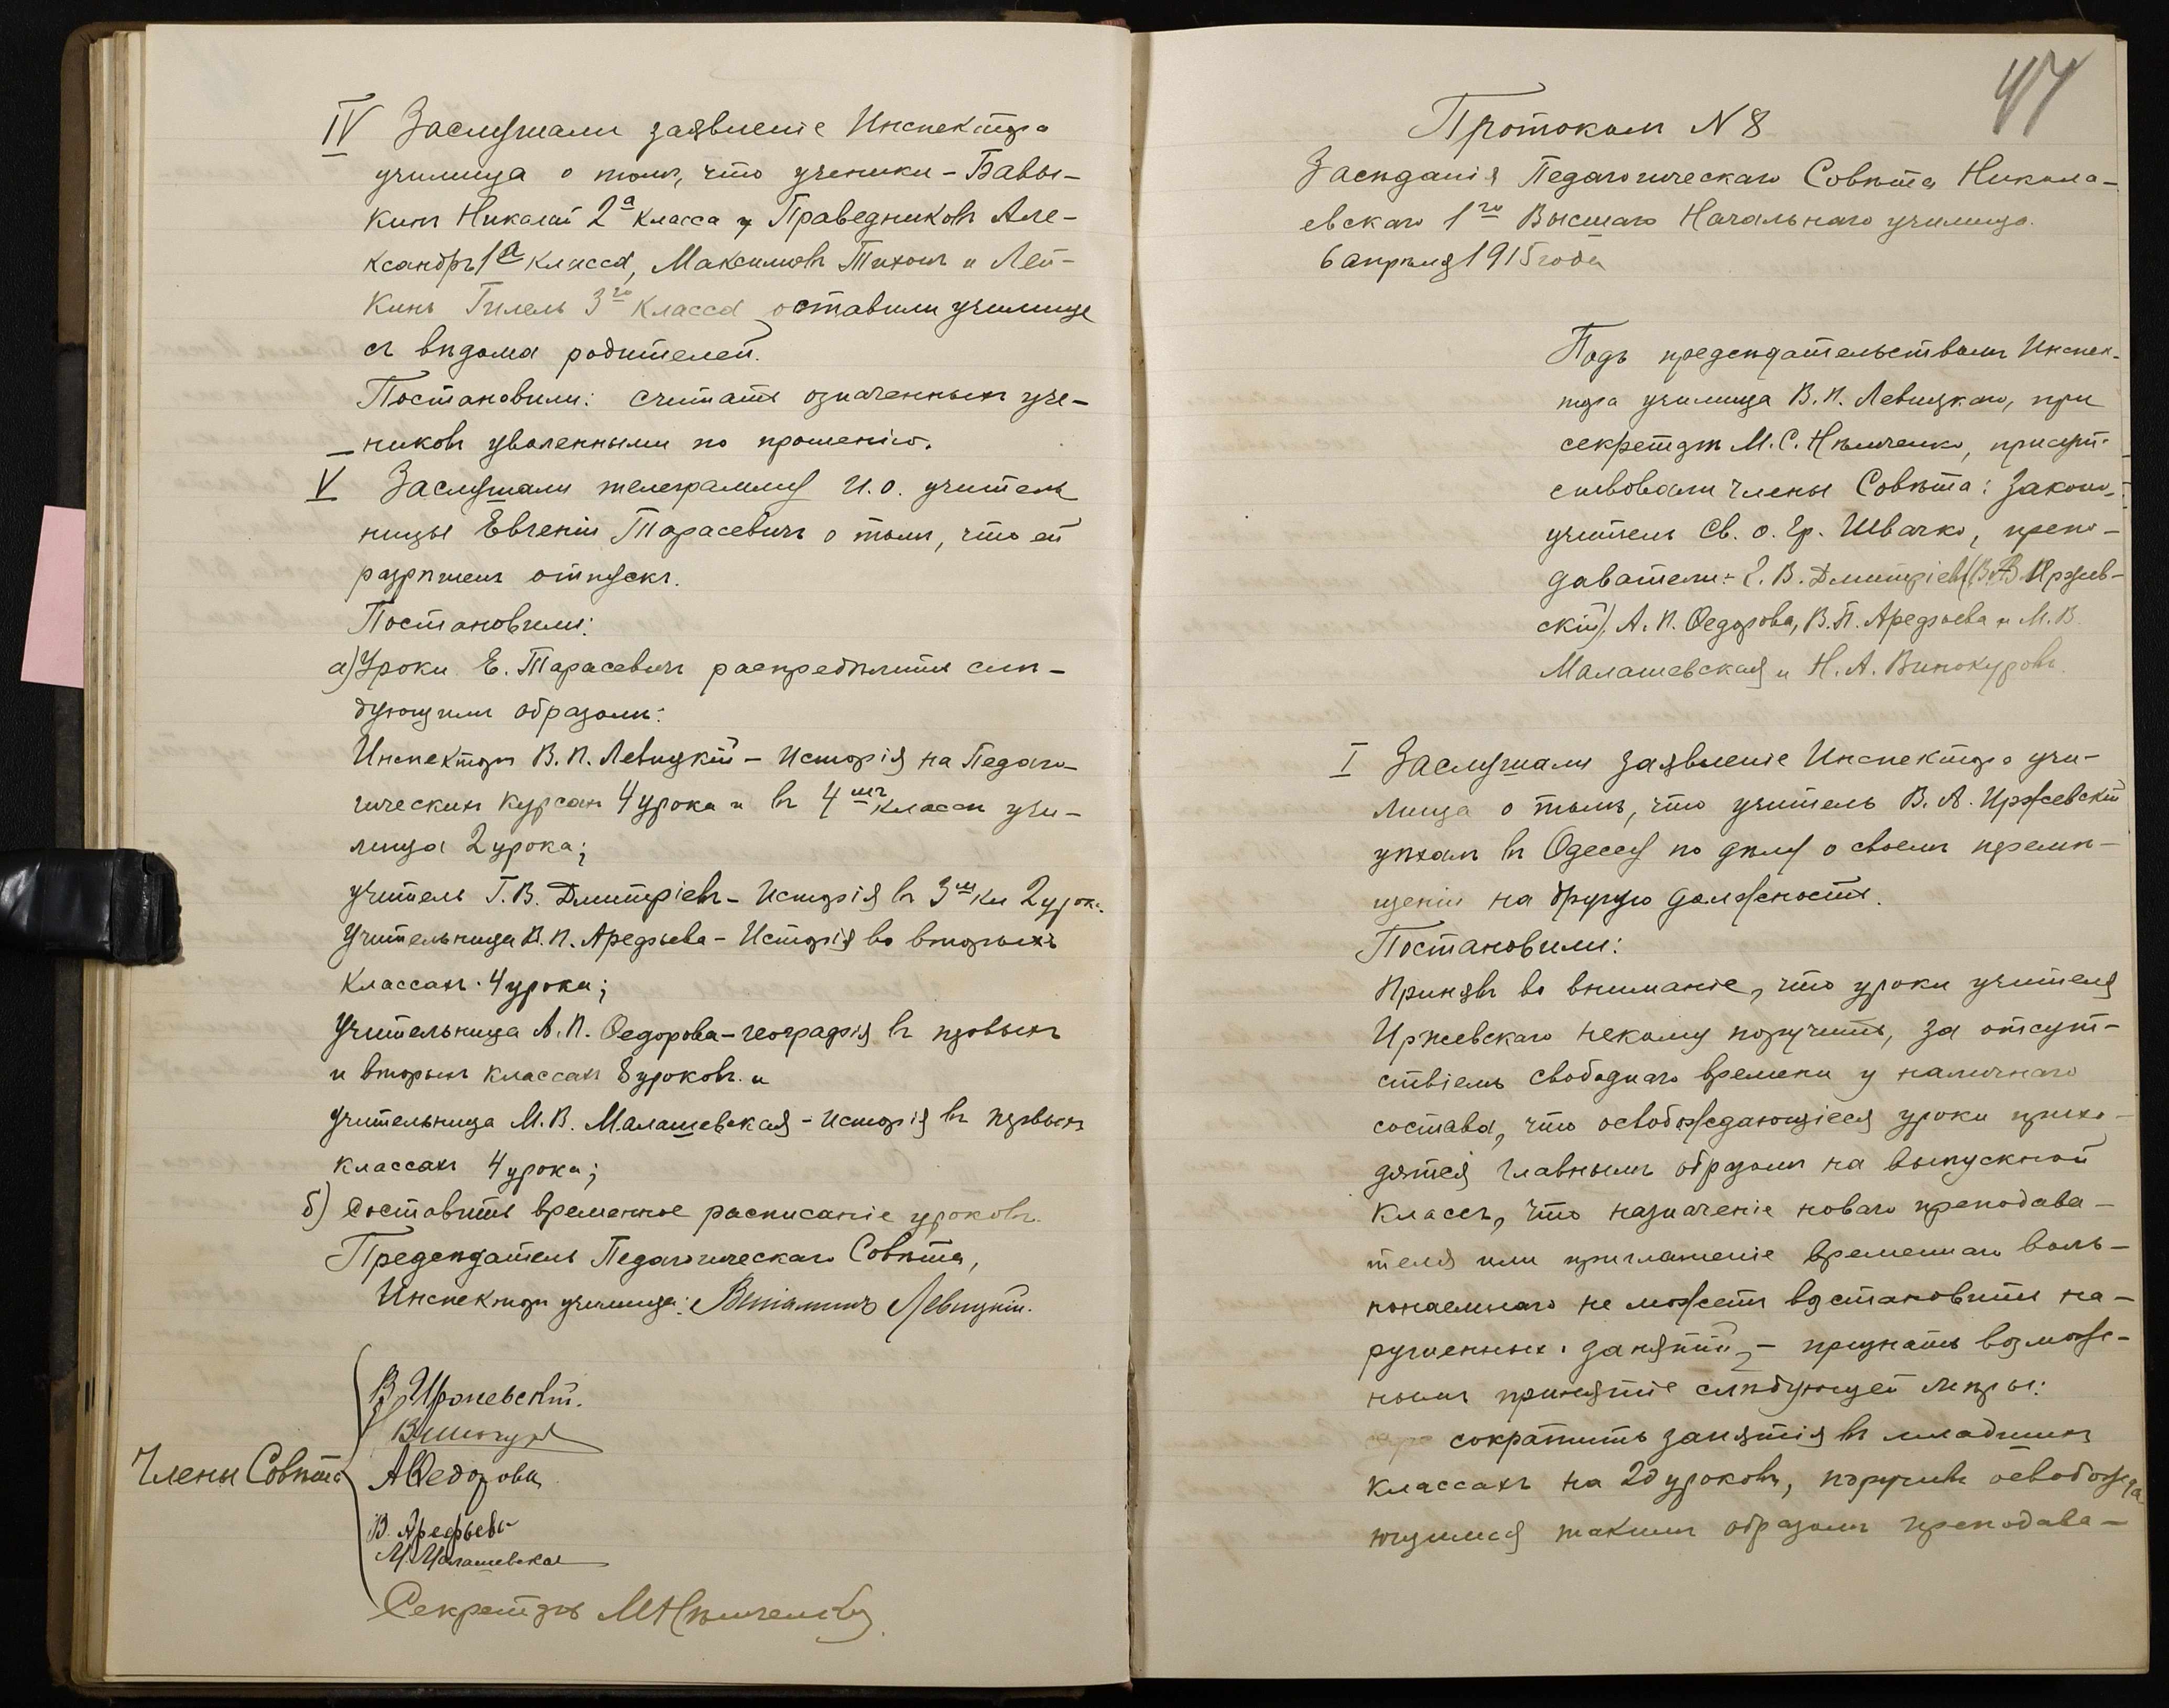 IV Заслушали заявленіе Инспектора
училища о томъ, что ученики – Бавы-
кинъ Николай 2а класса и Праведниковъ Але-
ксандръ 1а класса, Максимовъ Тихонъ и Лей-
кинъ Гилель 3го класса оставили училище
съ вѣдома родителей.
Постановили: считать означенныхъ уче-
никовъ уволенными по прошенію.
V Заслушали телеграмму И.о. учитель
ницы Евгеніи Тарасевичъ о томъ, что ей
разрѣшенъ отпускъ.
Постановили:
а) Уроки Е. Тарасевичъ распредѣлить слѣ-
дующимъ образомъ:
Инспекторъ В. П. Левицкій – Исторія на Педаго-
гическихъ курсахъ 4 урока и въ 4мъ классѣ учи-
лища 2 урока;
учитель Г. В. Дмитріевъ – Исторія въ 3м кл 2 урок.
Учительница В. П. Арефьева – Исторія во вторыхъ
классахъ 4 урока;
Учительница А. П. Ѳедорова – географія въ первыхъ
и вторыхъ классахъ 8 уроковъ и
Учительница М. В. Малашевская – исторія въ первыхъ
классахъ 4 урока;
б) Составить временное расписаніе уроковъ.
Предсѣдатель Педагогическаго Совѣта,
Инспекторъ училища: Веніаминъ Левицкій.
Члены Совѣта
В. Иржевскій.
Винокуровъ
АѲедорова
В. Арефьева
М. Малашевская
Секретарь МНѣмченко
47
Протоколъ N 8
Засѣданія Педагогическаго Совѣта Никола-
евскаго 1го Высшаго Начальнаго училища.
6 апрѣля 1915 года
Подъ предсѣдательствомъ Инспек-
тора училища В. П. Левицкаго, при
секретарѣ М. С. Нѣмченко, присут-
ствовали члены Совѣта: Законо-
учитель Св. о. Гр. Швачко, препо-
даватели: Г. В. Дмитріевъ (В. А. Иржев-
скій), А. П. Ѳедорова, В. П. Арефьева и М. В.
Малашевская и Н. А. Винокуровъ.
I Заслушали заявленіе Инспектора учи-
лища о томъ, что учитель В. А. Иржевскій
уѣхалъ въ Одессу по дѣлу о своемъ перемѣ-
щеніи на другую должность.
Постановили:
Принявъ во вниманіе, что уроки учителя
Иржевскаго некому поручить, за отсут-
ствіемъ свободнаго времени у наличнаго
состава, что освобождающіеся уроки прихо-
дятся главнымъ образомъ на выпускной
классъ, что назначеніе новаго преподава-
теля или приглашеніе временнаго воль-
нонаемнаго не можетъ возстановить на-
рушенныхъ занятій, – признать возмож-
нымъ принятіе слѣдующей мѣры:
сократить занятія въ младшихъ
классахъ на 20 уроковъ, поручивъ освобожда
ющимся такимъ образомъ преподава-